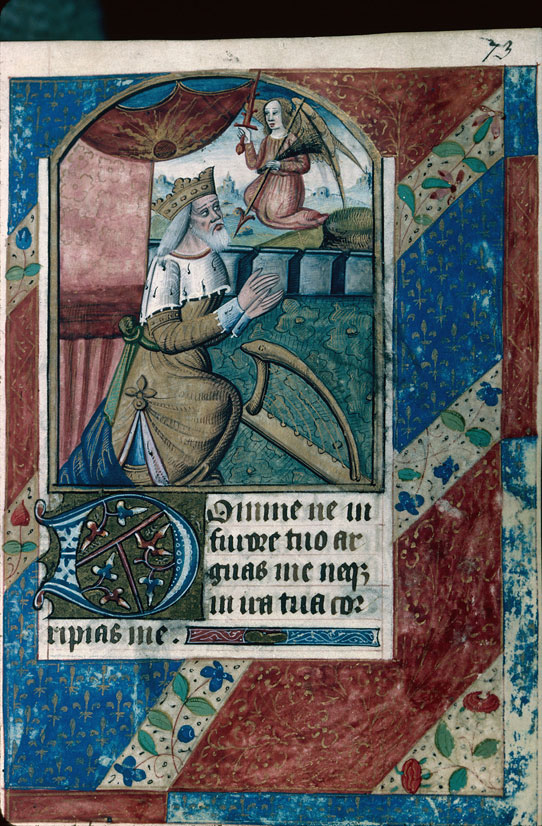 73
Domine ne in
furore tuo ar
guas me neqz
in ira tua cor
ripias me.